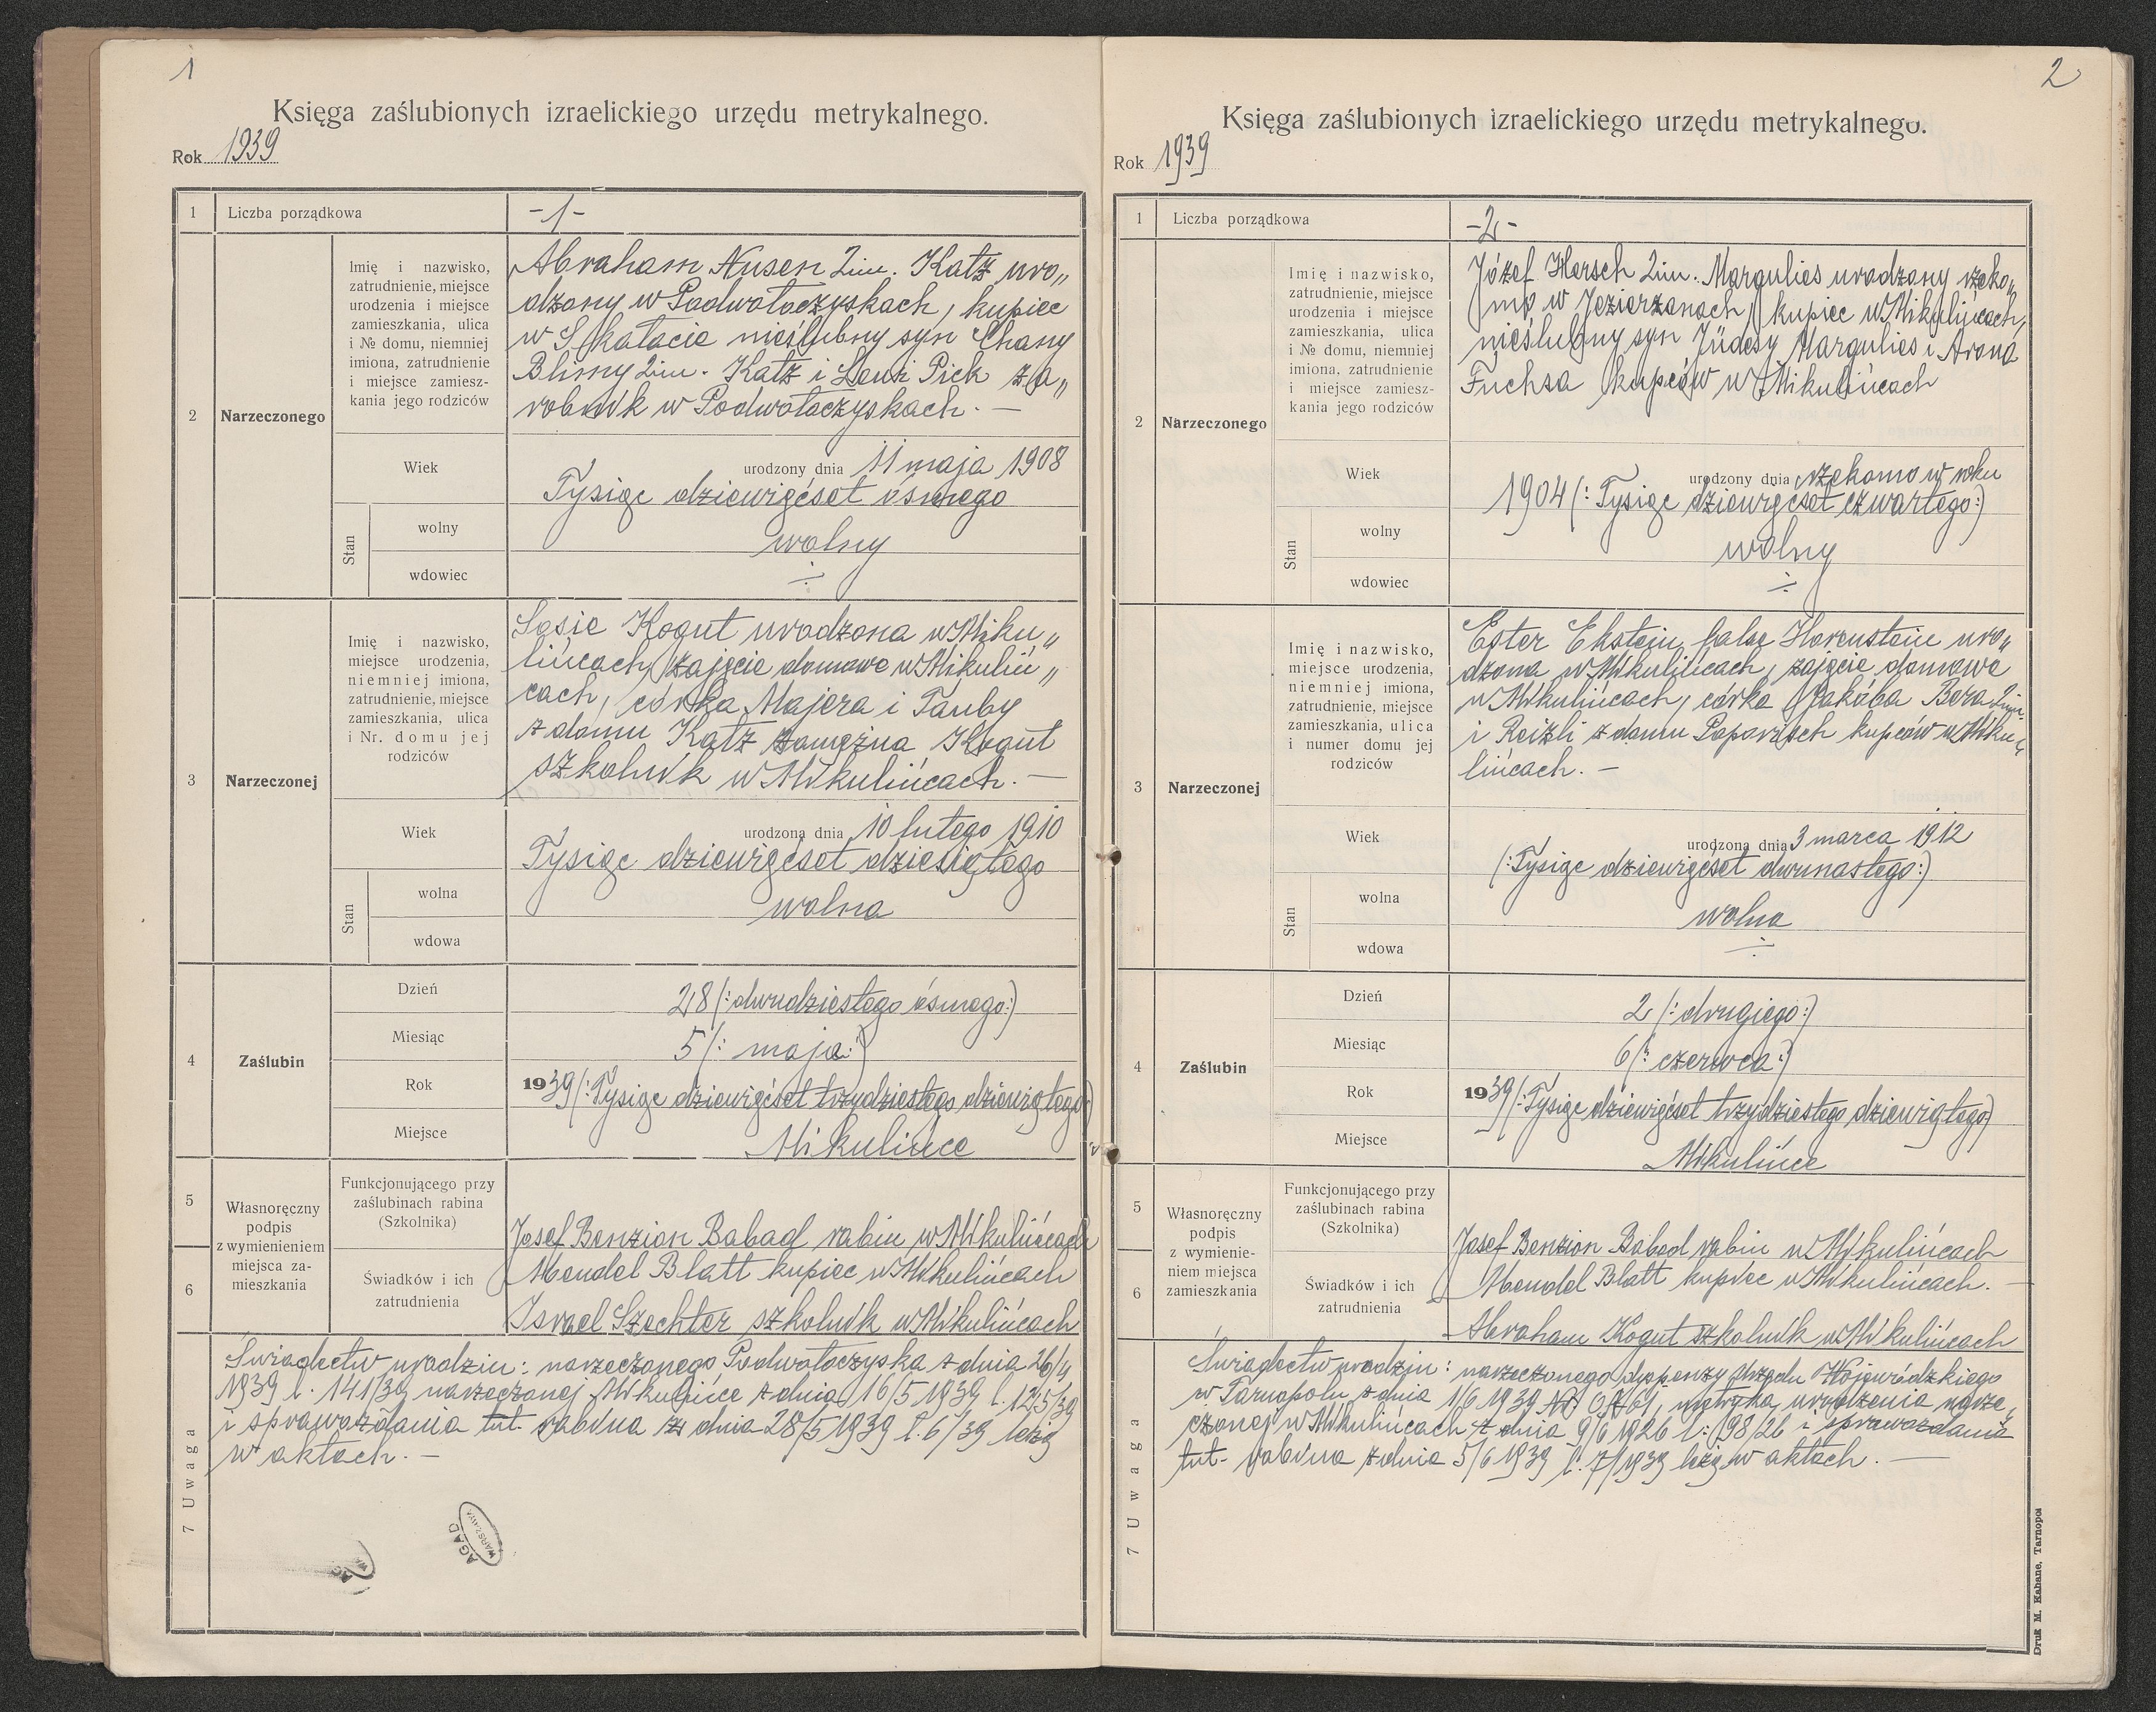 1
Księga zaślubionych izraelickiego urzędu metrykalnego.
Rok 1939
1 Liczba porządkowa -1-
2 Narzeczonego
Imię i nazwisko,
zatrudnienie, miejsce
urodzenia i miejsce
zamieszkania, ulica
i № domu, niemniej
imiona, zatrudnienie
i miejsce zamiesz-
kania jego rodziców
Abraham Nusen 2im. Katz uro„
dzony w Podwołoczyskach, kupiec
w Skałacie nieślubny syn Chany
Blimy 2im. Katz i Pick za„
robnik w Podwołoczyskach. —
Wiek urodzony dnia 11 maja 1908
Tysiąc dziewięćset ósmego
Stan
wolny wolny
wdowiec ÷
3 Narzeczonej
Imię i nazwisko,
miejsce urodzenia,
niemniej imiona,
zatrudnienie, miejsce
zamieszkania, ulica
i Nr. domu jej
rodziców
Sosie Kogut urodzona w Miku„
lińcach, zajęcie domowe w Mikuliń„
cach, córka Majera i Tauby
z domu Katz zamężna Kogut
szkolnik w Mikulińcach. —
Wiek urodzona dnia 10 lutego 1910
Tysiąc dziewięćset dziesiątego
Stan
wolna wolna
wdowa
4 Zaślubin
Dzień 28 (: dwudziestego ósmego :)
Miesiąc 5 (: maja :)
Rok 1939 (: Tysiąc dziewięćset trzydziestego dziewiątego :)
Miejsce Mikulińce
5
6
Własnoręczny
podpis
z wymienieniem
miejsca za-
mieszkania
Funkcjonującego przy
zaślubinach rabina
(Szkolnika)
Josef Benzion Babad rabin w Mikulińcach
Świadków i ich
zatrudnienia
Mendel Blatt kupiec w Mikulińcach
Israel Szechter szkolnik w Mikulińcach
7 Uwaga
Świadectw urodzin: narzeczonego Podwołoczyska z dnia 26/4
1939 l. 141/39 narzeczonej Mikulińce z dnia 16/5 1939 l. 125/39
i sprawozdania tut. rabina z dnia 28/5 1939 l. 6/39 leżą
w aktach. —
AGAD
WARSZAWA
2
Księga zaślubionych izraelickiego urzędu metrykalnego.
Rok 1939
1 Liczba porządkowa -2-
2 Narzeczonego
Imię i nazwisko,
zatrudnienie, miejsce
urodzenia i miejsce
zamieszkania, ulica
i № domu, niemniej
imiona, zatrudnienie
i miejsce zamiesz-
kania jego rodziców
Józef Hersch 2im. Margulies urodzony rzeko„
mo w Jezierzanach, kupiec w Mikulińcach,
nieślubny syn Jüdesy Margulies i Arona
Fuchsa kupców w Mikulińcach
Wiek urodzony dnia rzekomo w roku
1904 (: Tysiąc dziewięćset czwartego :)
Stan
wolny wolny
wdowiec ÷
3 Narzeczonej
Imię i nazwisko,
miejsce urodzenia,
niemniej imiona,
zatrudnienie, miejsce
zamieszkania, ulica
i numer domu jej
rodziców
Ester Ekstein false Horenstein uro„
dzona w Mikulińcach, zajęcie domowe
w Mikulińcach, córka Jakóba Bera 2im.
i Reizli z domu kupców w Miku„
lińcach. —
Wiek urodzona dnia 3 marca 1912
(: Tysiąc dziewięćset dwunastego :)
Stan
wolna wolna
wdowa ÷
4 Zaślubin
Dzień 2 (: drugiego :)
Miesiąc 6 (: czerwca :)
Rok 1939 (: Tysiąc dziewięćset trzydziestego dziewiątego)
Miejsce Mikulińce
5
6
Własnoręczny
podpis
z wymienie-
niem miejsca
zamieszkania
Funkcjonującego przy
zaślubinach rabina
(Szkolnika)
Josef Benzion Babad rabin w Mikulińcach
Świadków i ich
zatrudnienia
Mendel Blatt kupiec w Mikulińcach. —
Abraham Kogut szkolnik w Mikulińcach
7 Uwaga
Świadectw urodzin: narzeczonego Urzędu Wojewódzkiego
w Tarnopolu z dnia 1/6 1939 metryka urodzenia narze„
czonej w Mikulińcach z dnia 9/6 1926 l: 198/26 i sprawozdania
tut. rabina z dnia 5/6 1939 l. 7/1939 leżą w aktach. —
Druk M. Kahane, Tarnopol